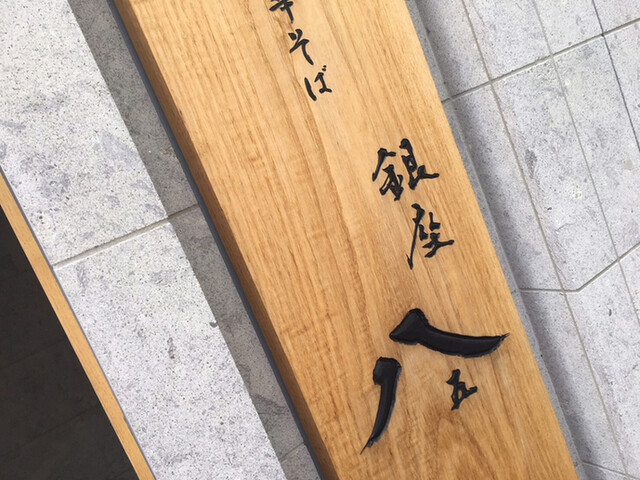 華そば
銀座
八五